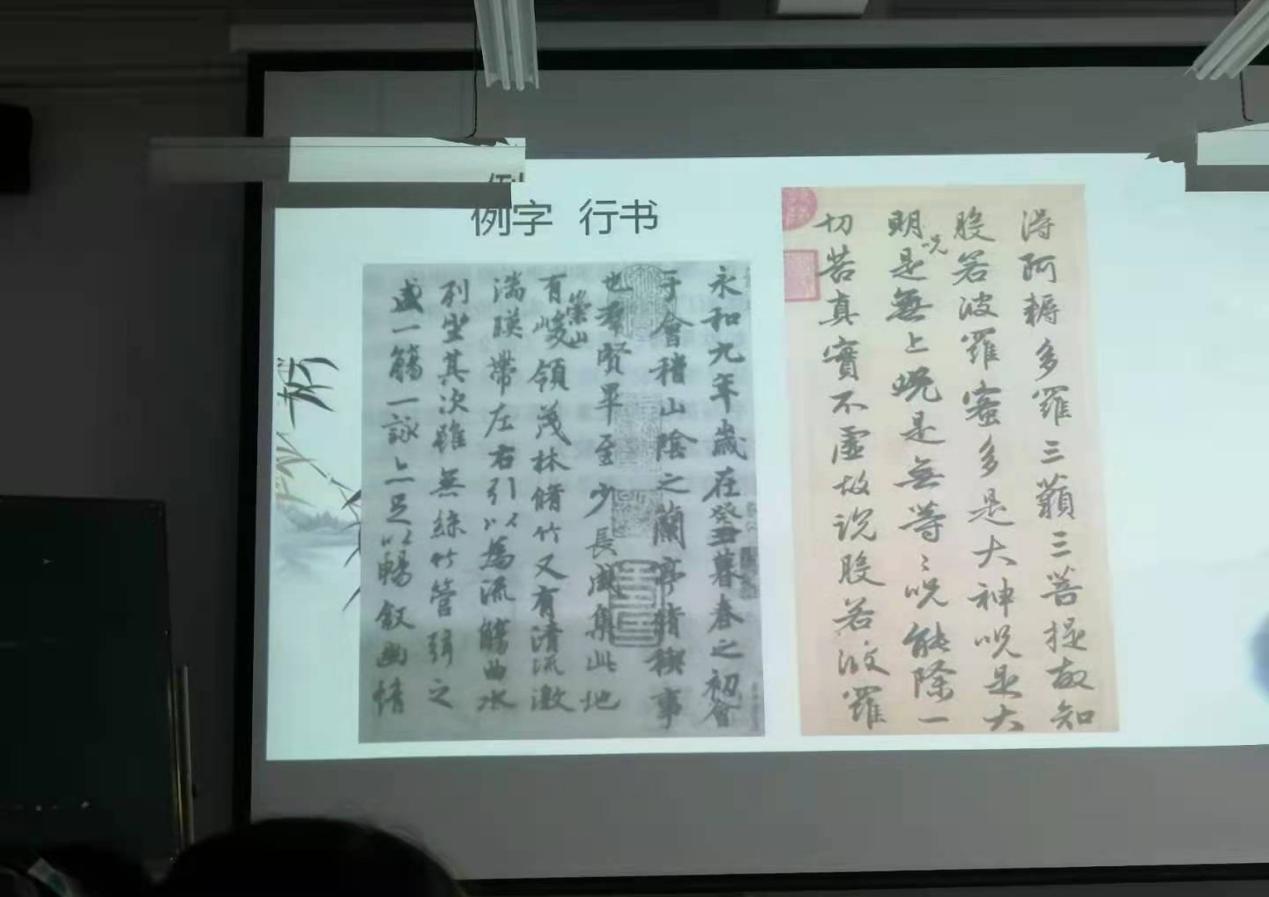 例字 行书
永和九年歲在癸丑暮春之初會
于會稽山陰之蘭亭脩禊事
也羣賢畢至少長咸集此地
有崇山峻領茂林脩竹又有清流激
湍暎帶左右引以爲流觴曲水
列坐其次雖無絲竹管弦之
盛一觴一詠亦足以暢叙幽情
得阿耨多羅三藐三菩提故知
般若波羅蜜多是大神呪是大
明呪是無上呪是無等等呪能除一
切苦真實不虛故說般若波羅